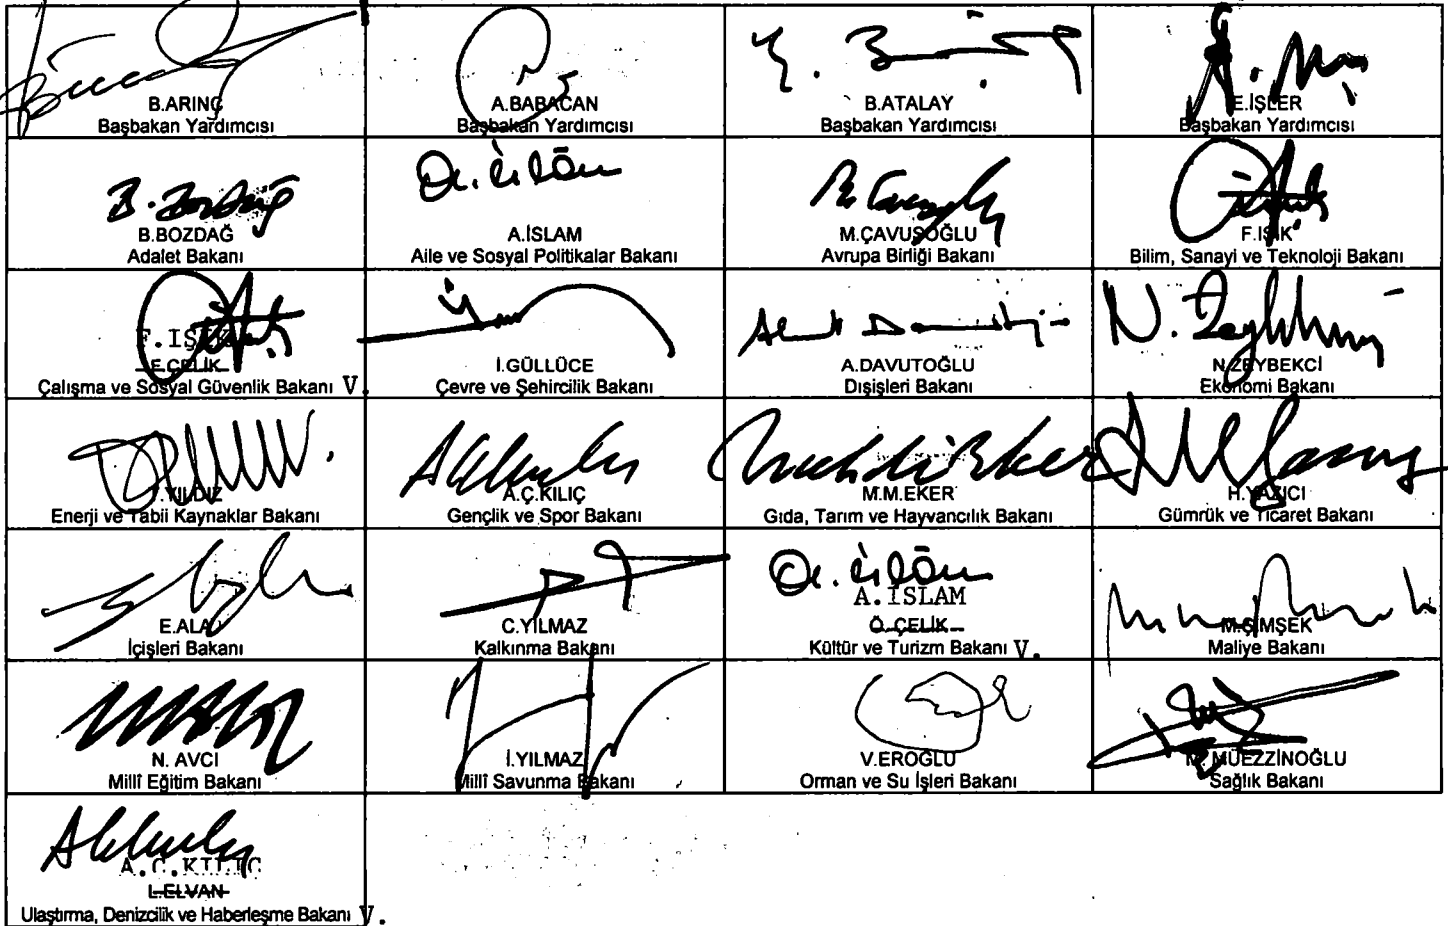 B.ARINÇ
Başbakan Yardımcısı
A.BABACAN
Başbakan Yardımcısı
B.ATALAY
Başbakan Yardımcısı
E.İŞLER
Başbakan Yardımcısı
B.BOZDAĞ
Adalet Bakanı
A.İSLAM
Aile ve Sosyal Politikalar Bakanı
M.ÇAVUŞOĞLU
Avrupa Birliği Bakanı
F.IŞIK
Bilim, Sanayi ve Teknoloji Bakanı
F.IŞIK
F.ÇELİK
Çalışma ve Sosyal Güvenlik Bakanı V.
İ.GÜLLÜCE
Çevre ve Şehircilik Bakanı
A.DAVUTOĞLU
Dışişleri Bakanı
N.ZEYBEKCİ
Ekonomi Bakanı
T.YILDIZ
Enerji ve Tabii Kaynaklar Bakanı
A.Ç.KILIÇ
Gençlik ve Spor Bakanı
M.M.EKER
Gıda, Tarım ve Hayvancılık Bakanı
H.YAZICI
Gümrük ve Ticaret Bakanı
E.ALA
İçişleri Bakanı
C.YILMAZ
Kalkınma Bakanı
A.İSLAM
Ö.ÇELİK
Kültür ve Turizm Bakanı V.
M.ŞİMŞEK
Maliye Bakanı
N. AVCI
Millî Eğitim Bakanı
İ.YILMAZ
Millî Savunma Bakanı
V.EROĞLU
Orman ve Su İşleri Bakanı
M. MÜEZZİNOĞLU
Sağlık Bakanı
A.Ç.KILIÇ
L.ELVAN
Ulaştırma, Denizcilik ve Haberleşme Bakanı V.